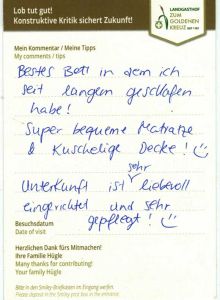 Lob tut gut!
Konstruktive Kritik sichert Zukunft!
LANDGASTHOF
ZUM
GOLDENEN
KREUZ
Mein Kommentar / Meine Tipps
My comments / tips
Bestes Bett in dem ich
seit langem geschlafen
habe!
Super bequeme Matratze
& Kuschelige Decke!
sehr
Unterkunft ist liebevoll
eingerichtet und sehr
gepflegt!
Besuchsdatum
Date of visit
Herzlichen Dank fürs Mitmachen!
Ihre Familie Hügle
Many thanks for contributing!
Your family Hügle
Bitte in den Smiley-Briefkasten im Eingang werfen.
Please deposit in the Smiley post box in the entrance.